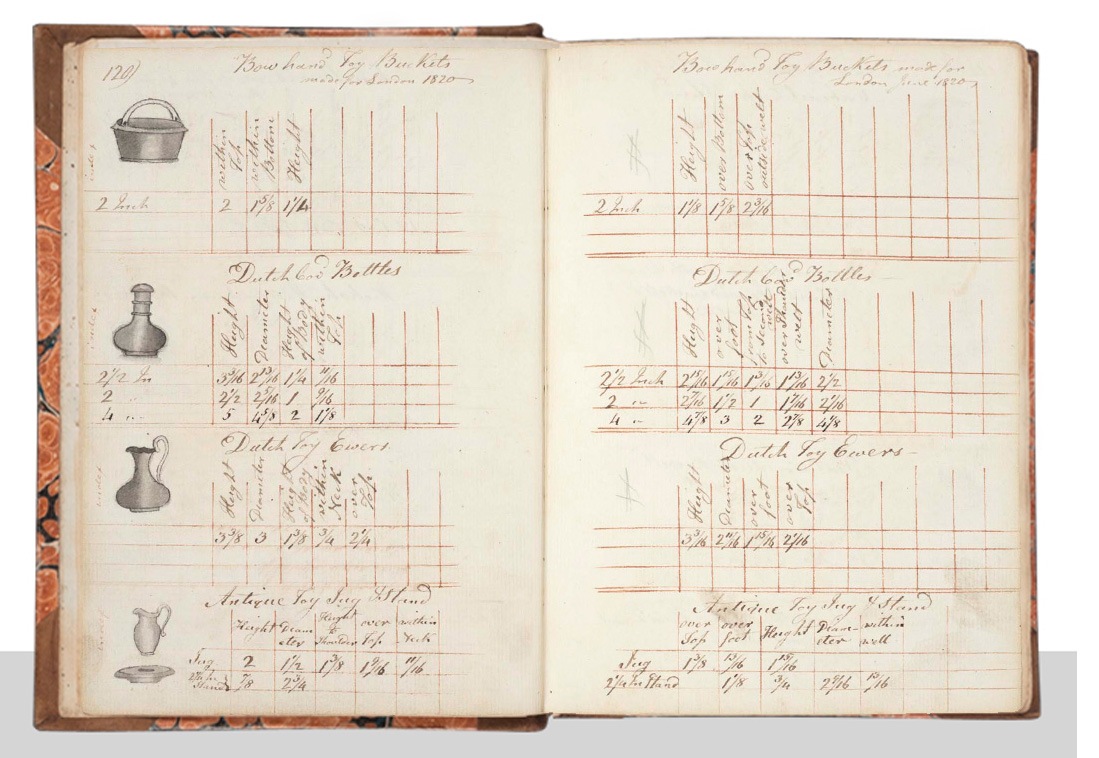 120)
Bow hand Toy Buckets
made for London 1820
within Top
within Bottom
Height
2 Inch 2 1 5/8 1 1/4
Dutch Cov'd Bottles
Height
Diameter
Height of Body
within Top
2 1/2 In 3 3/16 2 13/16 1 1/4 11/16
2 " 2 1/2 2 5/16 1 9/16
4 " 5 4 5/8 2 1 1/8
Dutch Toy Ewers
Height
Diameter
Height of Body
within Neck
over Top
3 3/8 3 1 3/8 3/4 2 1/4
Antique Toy Jug & Stand
Height
Diameter
Height to Shoulder
over Top
within Neck
Jug 2 1 1/2 1 3/8 1 9/16 11/16
Stand 7/8 2 3/4
Bow hand Toy Buckets made for
London June 1820
Height
over Bottom
over Top outside welt
2 Inch 1 1/8 1 5/8 2 3/16
Dutch Cov'd Bottles
Height
over foot
from Top to second welt
over Shoulder welt
Diameter
2 1/2 Inch 2 15/16 1 15/16 1 3/16 1 13/16 2 1/2
2 " 2 7/16 1 1/2 1 1 7/16 2 1/16
4 " 4 7/8 3 2 2 7/8 4 1/8
Dutch Toy Ewers
Height
Diameter
over foot
over Top
3 3/16 2 11/16 1 15/16 2 1/16
Antique Toy Jug & Stand
over Top
over foot
Height
Diameter
within well
Jug 1 3/8 15/16 1 15/16
2 1/4 In Stand 1 1/8 3/4 2 9/16 13/16